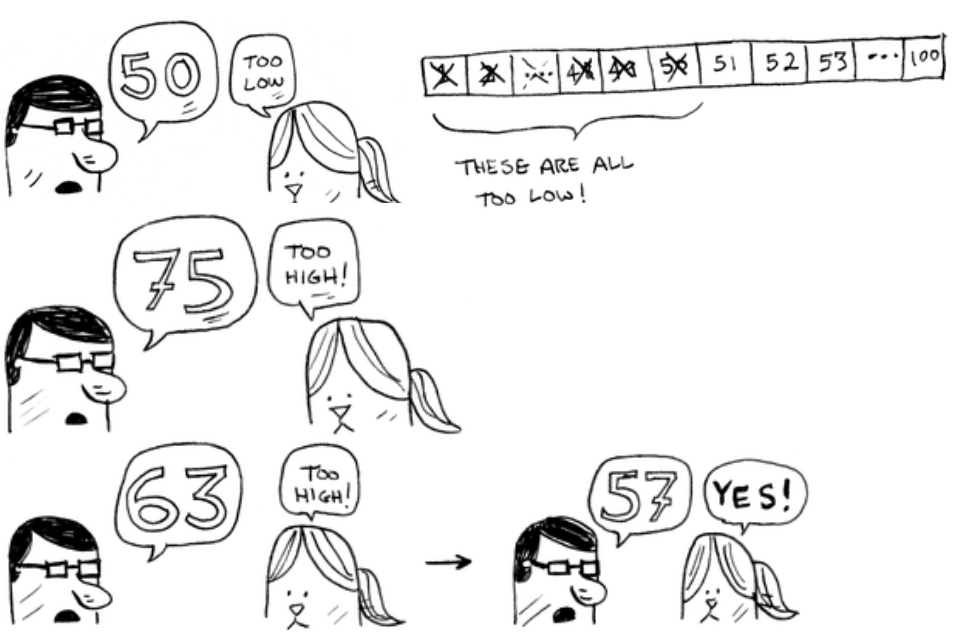 50
TOO
LOW
1 2 ... 48 49 50 51 52 53 ... 100
THESE ARE ALL
TOO LOW!
75
TOO
HIGH!
63
TOO
HIGH!
57
YES!